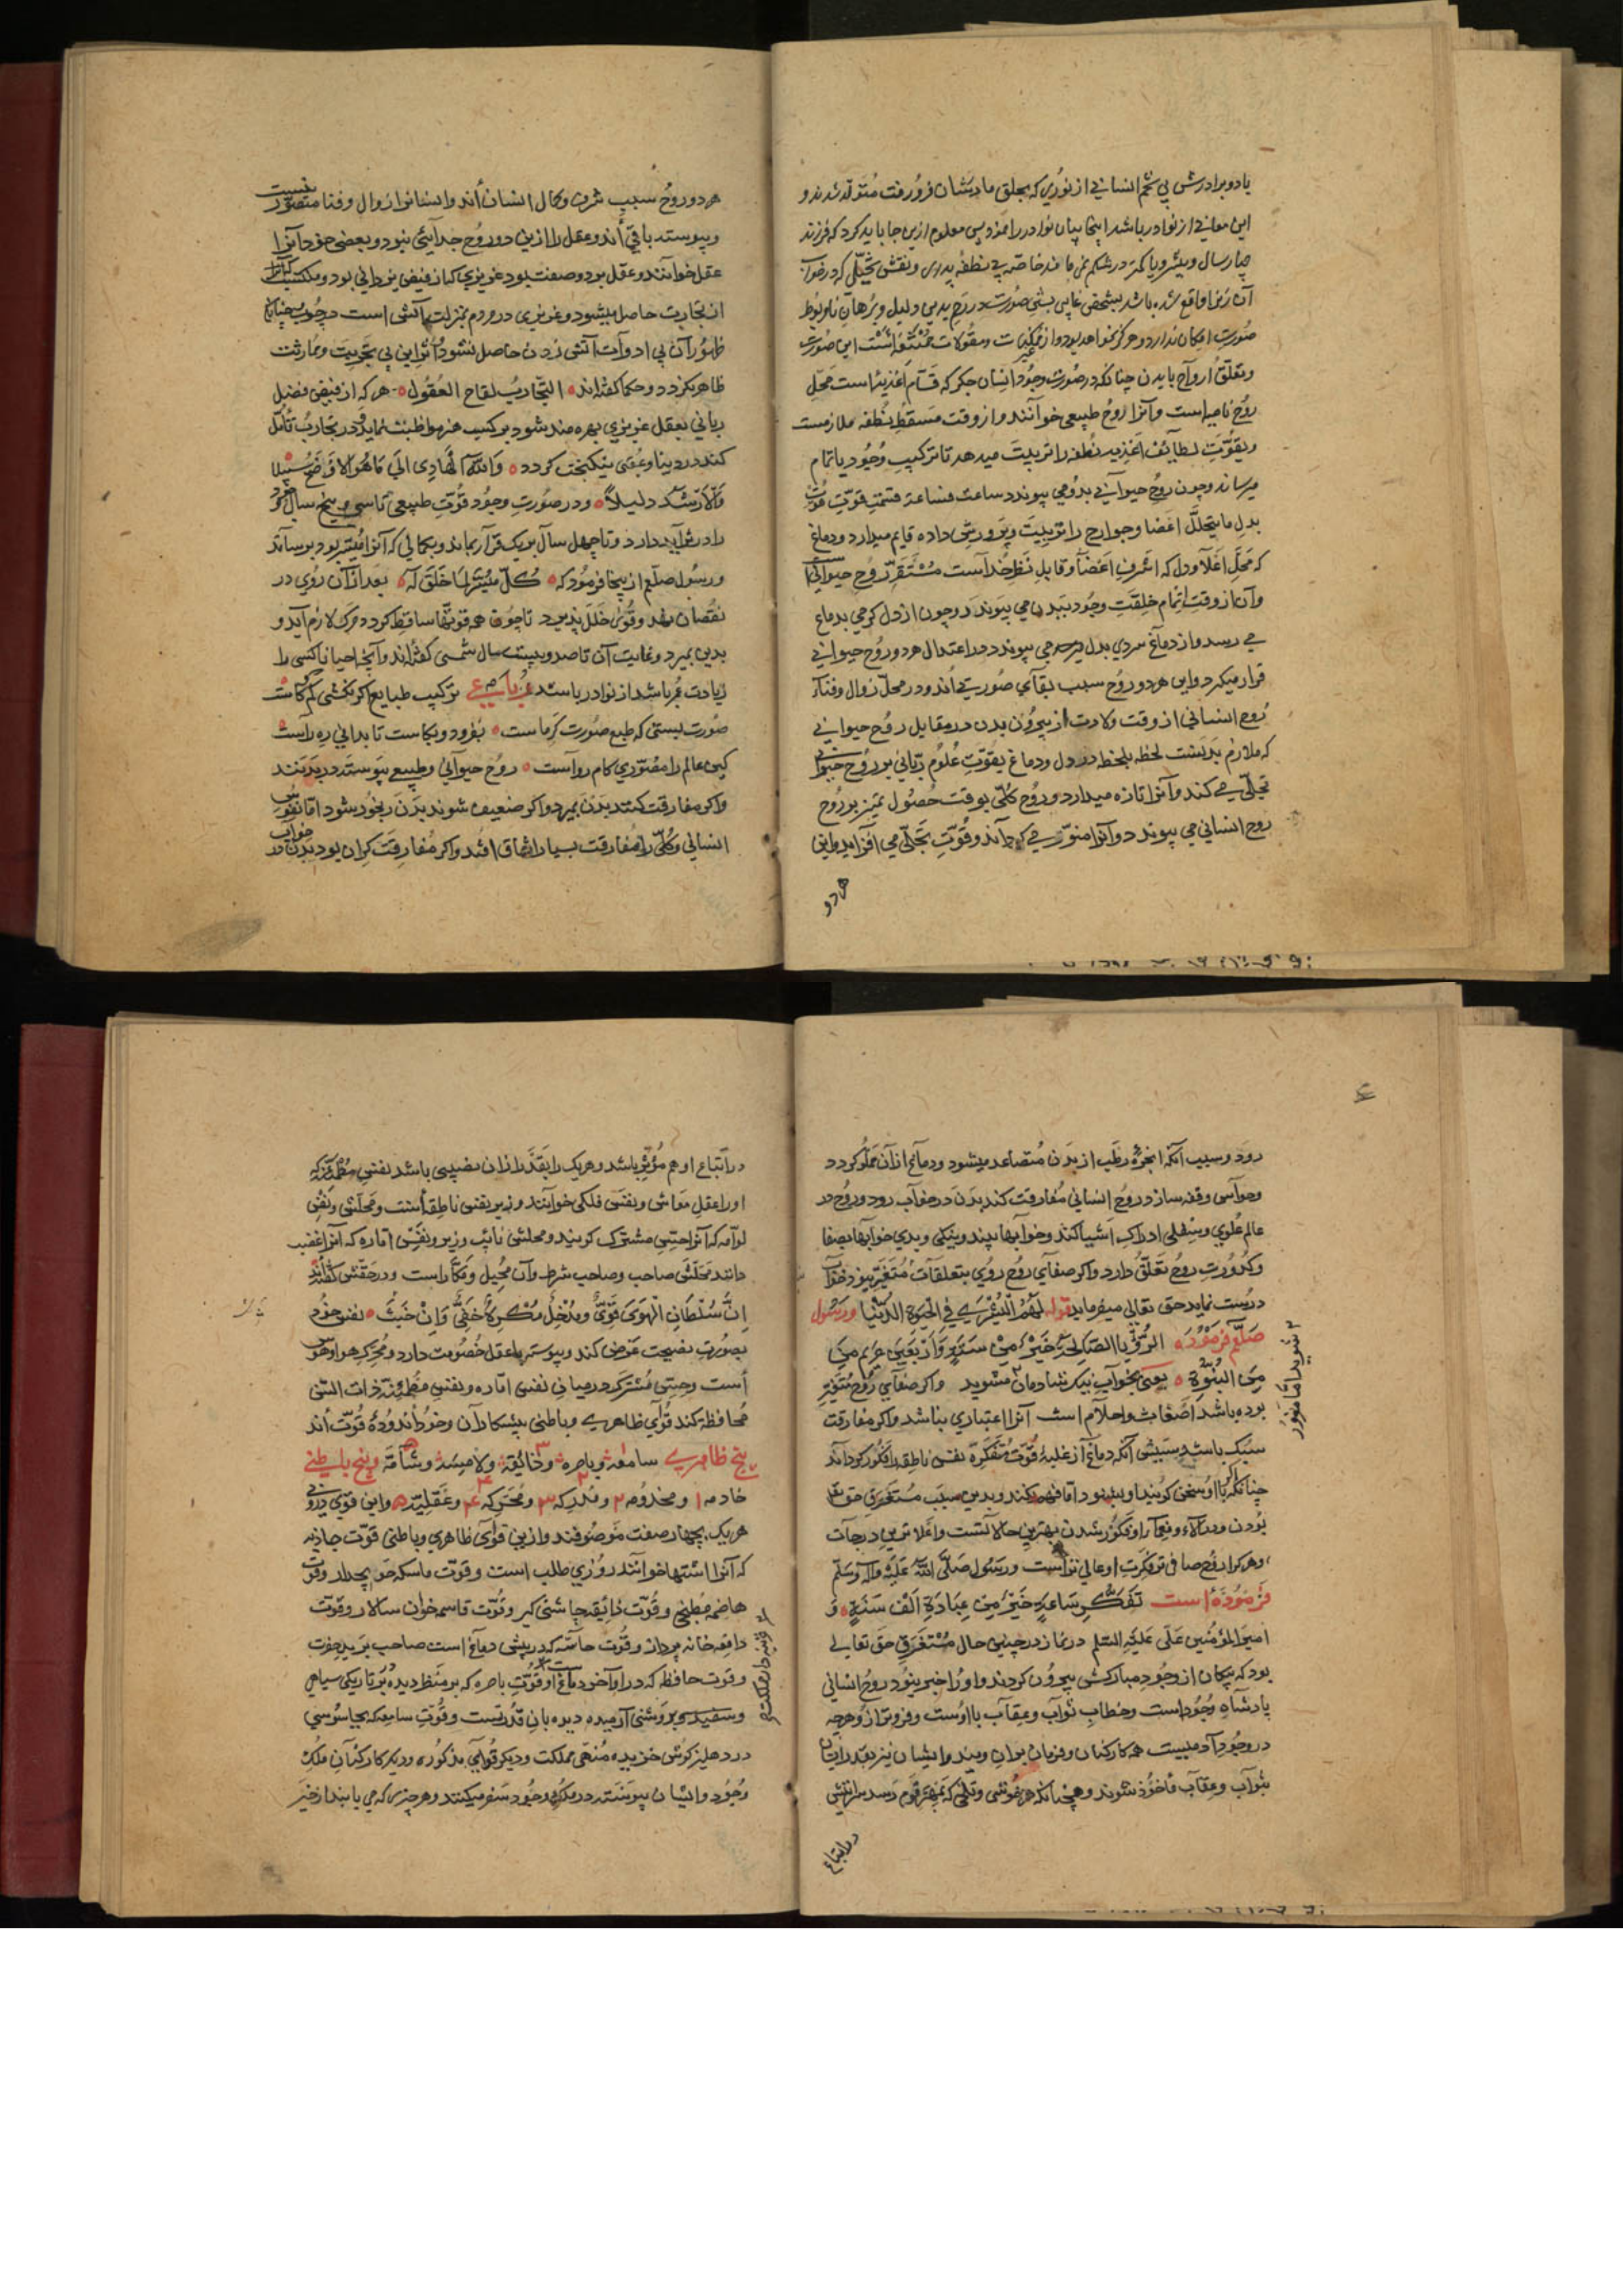 یا دو برادرش بی تخم انسانی از نوری که بحلق مادرشان فرو رفت متولد شدند و
این معانی از نوادر باشد اینجا بیان نوادر را نمود پس معلوم ازین جا باید کرد که فرزند
چهار سال و بیشتر و یا کمتر در شکم نمی ماند خاصه بی نطفه پدری و نقش تخیلی که در خواب
آن زن را واقع شده باشد بشخص غایبی صورت در رحم بی دلیل و برهان نامربوط
صورت امکان ندارد و هرگز نخواهد بود و از غیر ممکنات و مقولات ممتنعه است این صورت
و تعلق ارواح با بدن چنانکه در صورت وجود انسان جگر که قسام اغذیه است محل
روح نامیه است و آنرا روح طبیعی خوانند و از وقت مسقط نطفه ملازمست
و بقوت لطایف اغذیه نطفه را تربیت میدهد تا ترکیب وجود با تمام
میرساند و چون روح حیوانی بدو می پیوندد ساعت فساعة قوت
بدل ما یتحلل اعضا و جوارح را تربیت و پرورش داده قایم میدارد و دماغ
که محل اعلا و دل که اشرف اعضا و قابل نظر خداست مستقر روح حیوانی است
و آن از وقت اتمام خلقت وجود ببدن می پیوندد و چون از دل گرمی بدماغ
می رسد و از دماغ سردی بدل می پیوندد در اعتدال هر دو روح حیوانی
قرار میگیرد و این هر دو روح سبب بقای صورت اند و در محل زوال و فنا
روح انسانی از وقت ولادت از بیرون بدن در مقابل روح حیوانی
که ملازم بدنست لحظه بلحظه در دل و دماغ بقوت علوم ربانی بر روح حیوانی
تجلی می کند و آنرا تازه میدارد و روح کلی بوقت حصول تمیز بر روح
روح انسانی می پیوندد و آنرا منور می گرداند و قوت تجلی می افزاید و این
هر دو
هر دو روح سبب شرف و کمال انسان اند و ایشانرا زوال و فنا متصور نیست
و پیوسته باقی اند و عقل را ازین دو روح جدایی نبود و بعضی خود آنرا
عقل خوانند و عقل بر دو صفت بود غریزی کان از فیض یزدانی بود و مکتسب کانرا
از تجارب حاصل میشود و غریزی در مردم بمنزلت آتش است در چوب چنانکه
ظهور آن بی ادوات آتش زدن حاصل نشود اثر این بی تجربت و ممارثت
ظاهر نکردد و حکما گفته اند التجارب لقاح العقول هر که از فیض فضل
ربانی بعقل غریزی بهره مند شود بر کسب هنر مواظبت نماید و در تجارب تأمل
کند در دنیا و عقبی نیکبخت گردد والله الهادی الی ما هو الاوضح سبیلا
والارشد دلیلا و در صورت وجود قوت طبیعی تا سی و پنج سال خود
را در تزاید دارد و تا چهل سال بر یک قرار بماند و بکمالی که آنرا میسر بود برساند
و رسول صلعم از ینجا فرموده که کل میسر لما خلق له بعد از آن روی در
نقصان نهد و قوی خلل پذیرد تا چون همه قوتها ساقط گردد مرگ لازم آید و
بدین بمیرد و نهایت آن تا صد و بیست سال شمسی گفته اند و آنچه احیانا کسی را
زیادت عمر باشد از نوادر باشد رباعی ترکیب طبایع اگر نکشتی کم و کاست
صورت بستی که طبع صورت گر ماست بفزود و بکاست تا بدانی ره راست
کین عالم را مصوری کام رواست روح حیوانی و طبیعی پیوسته در بدنند
و اگر مفارقت کنند بدن بمیرد و اگر ضعیف شوند بدن رنجور شود اما نفوس
انسانی و کلی را مفارقت بسیار اتفاق افتد و اگر مفارقت گران بود بدن در خواب
رود و سبب آنکه ابخره رطب از بدن متصاعد میشود و دماغ از آن مملو گردد
و حواس وقفه سازد روح انسانی مفارقت کند بدن در خواب رود و روح در
عالم علوی و سفلی ادراک اشیا کند و خوابها بیند و نیکی و بدی خوابها بصفا
و کدورت روح تعلق دارد و اگر صفای روح روی بتعلقات متغیر نبود خواب
درست نماید حق تعالی میفرماید قوله لهم البشری فی الحیوة الدنیا و رسول
صلعم فرموده الرؤیا الصالحة خیر من ستة و اربعین جزء من
من النبوة یعنی بخواب نیک شادمان شوید و اگر صفای روح متغیر
بوده باشد اضغاث و احلام است آنرا اعتباری نباشد و اگر مفارقت
سبک باشد و سببش آنکه دماغ از غلبه قوت متفکره نفس ناطقه را فکور گرداند
چنانکه اگر با او سخن گویند او بشنود اما فهم نکند و بدین سبب مستغرق حق تعا
بودن و در آلاء و نعما او فکور شدن بهترین حالاتست و اعلا ترین درجات
و هر کرا روح صافی تر فکرت او عالی تر است و رسول صلی الله علیه و آله وسلم
فرموده است تفکر ساعة خیر من عبادة الف سنة و
امیر المؤمنین علی علیه السلم در نماز در چنین حال مستغرق حق تعالی
بود که پیکان از وجود مبارکش بیرون کردند و او را خبر نبود روح انسانی
پادشاه وجود است و خطاب ثواب و عقاب با اوست و فروتر از و هر چه
در وجود آدمیست همه کارکنان و فرمان بران ویند و ایشان نیز بقدر ایشان
بثواب و عقاب مأخوذ شوند و همچنانکه هر خوشی و تلخی که بمهتر قوم رسد سرایتش
در اتباع
در اتباع او هم مؤثر باشد و هر یک را بقدر از ان نصیبی باشد نفس مطمئنه که
او را عقل معاش و نفس فلکی خوانند وزیر نفس ناطقه است و محلش و نفس
لوامه که آنرا حس مشترک گویند و محلش نایب وزیر و نفس اماره که آنرا غضب
دانند محلش صاحب و صاحب شرط و آن محیل و مکار است و در حقش گفته اند
ان سلطان الهوی قوی و مدخل مکره خفی وان خبث نفس خود
بصورت نصیحت عرض کند و پیوسته با عقل خصومت دارد و محرک هوا و هوس
است و حس مشترک در میان نفس اماره و نفس مطمئنه ذات البین
محافظه کند قوای ظاهری و باطنی پیشکاران و خود اند و ده قوت اند
پنج ظاهری سامعه و باصره و ذائقه و لامسه و شامه و پنج باطنی
خادمه ۱ و مخدومه ۲ و مدرکه ۳ و محرکه ۴ و عقلیه ۵ و این قوی درونی
هر یک بچهار صفت موصوفند و ازین قوای ظاهری و باطنی قوت جاذبه
که آنرا اشتها خوانند روزی طلب است و قوت ماسکه حوایجدار و قوت
هاضمه مطبخی و قوت ذائقه چاشنی گیر و قوت قاسمه خوان سالار و قوت
دافعه خانه پرداز و قوت حاسه که در پیش دماغ است صاحب برید حضرت
و قوت حافظه که در اواخر دماغ است و قوت باصره که بر منظر دیده بر تاریکی سیاهی
و سفیدی و روشنی آرمیده دیده بان قدرتست و قوت سامعه که بجاسوسی
در دهلیز گوش خزیده منهی مملکت و دیگر قوای مذکوره و دیگر کارکنان ملک
وجود و ایشان پیوسته در ملک وجود سفر میکنند و هر چیزی که می یابند از خیر